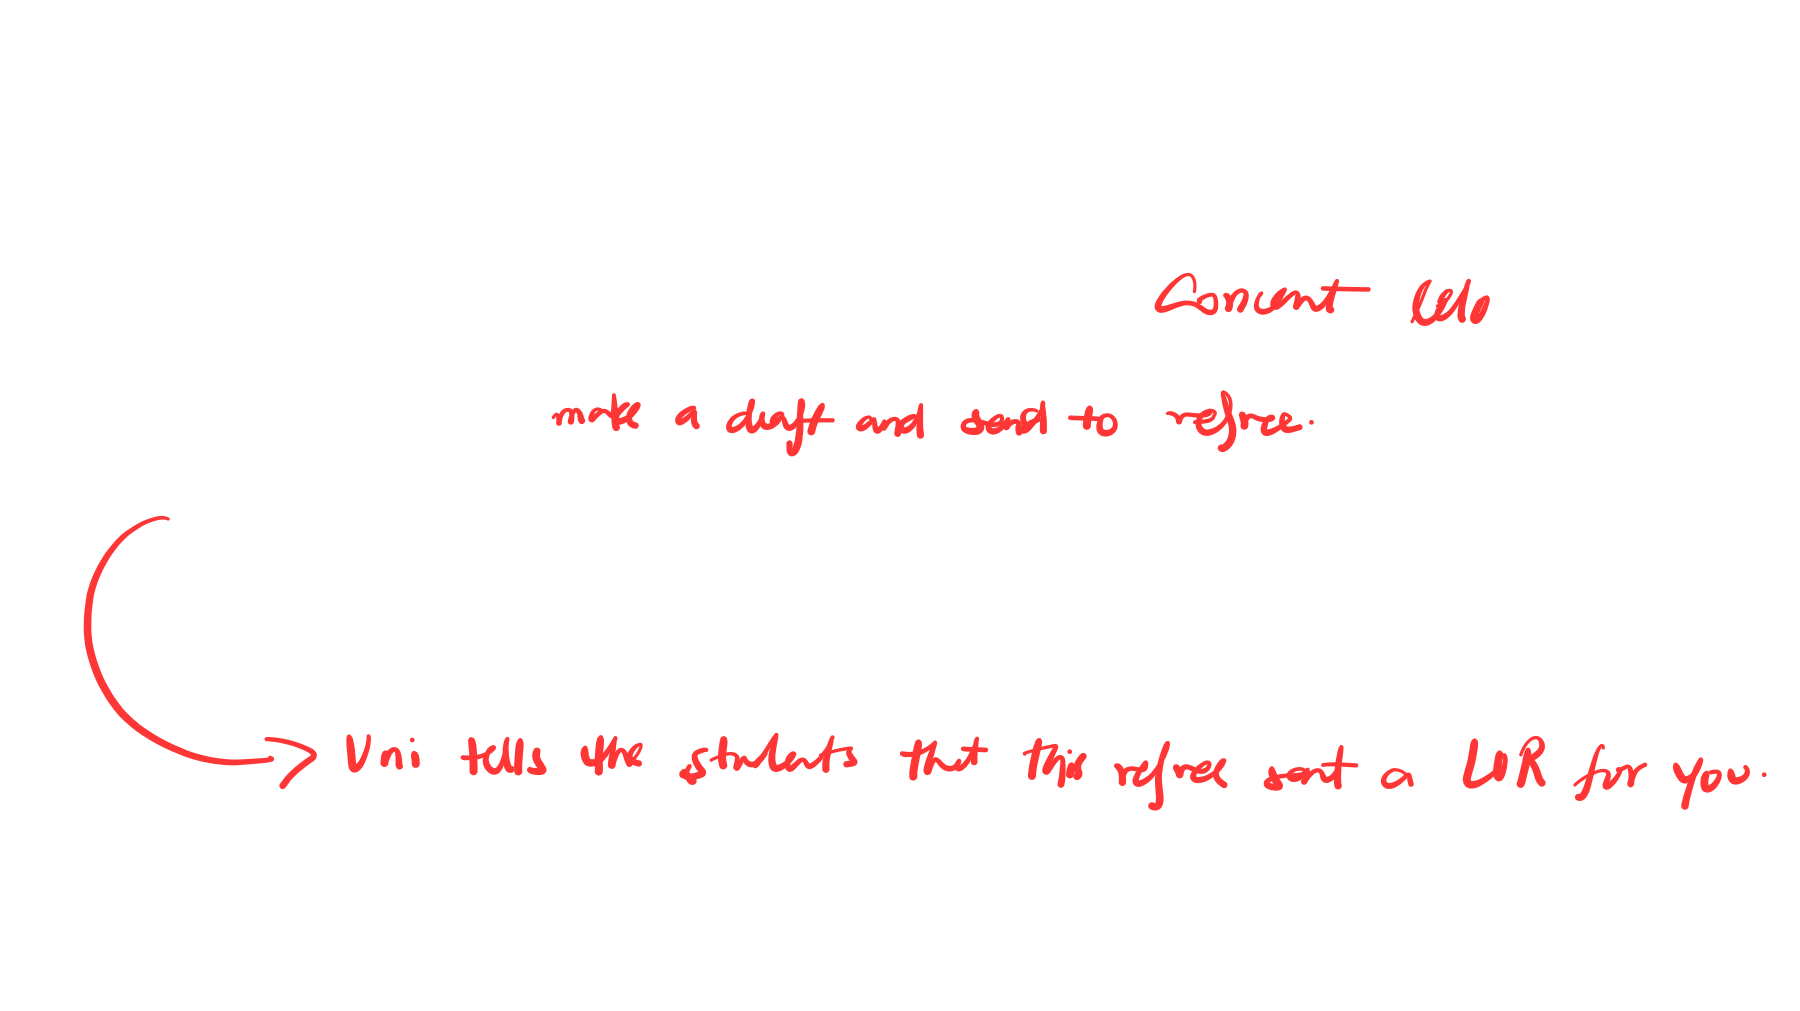 Concent
make a draft and send to refree.
Uni tells the students that this refree sent a LOR for you.